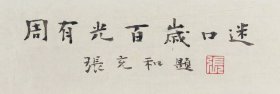 周有光百歲口述
張充和題